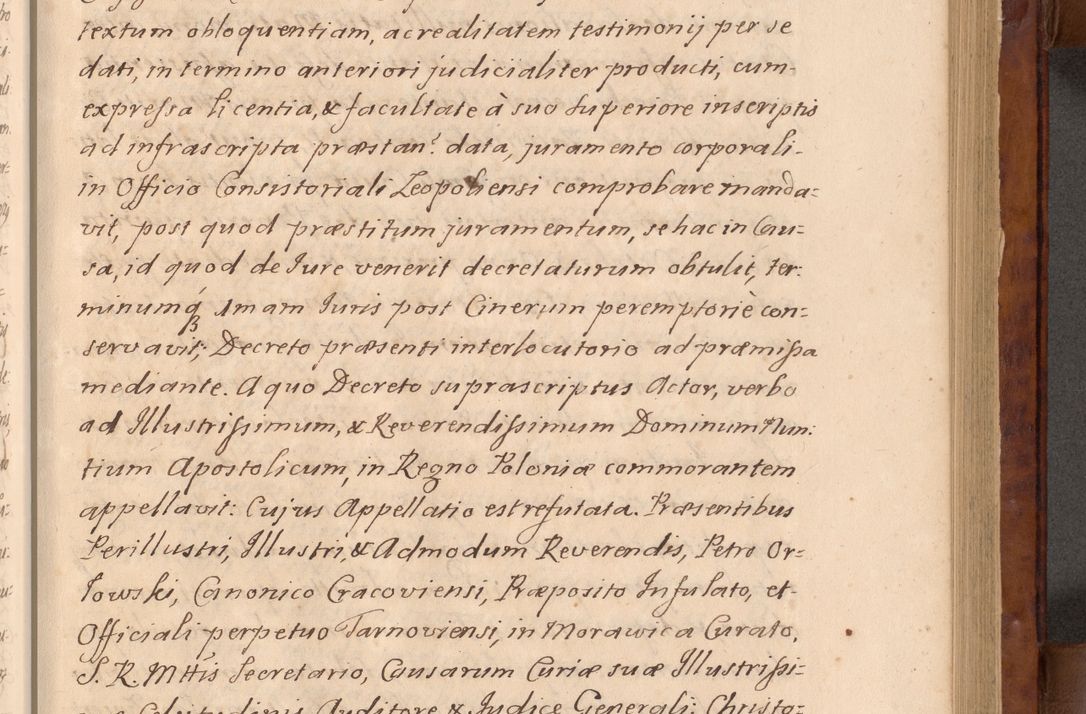 textum obloquentiam, ac realitatem testimonij per se
dati, in termino anteriori judicialiter producti, cum
expressa licentia, & facultate à suo Superiore inscriptis
ad infrascripta præstan? data, juramento corporali
in Officio Consistoriali Leopoliensi comprobare manda=
vit, post quod præstitum juramentum, se hac in Cau=
sa, id quod de Jure venerit decretaturum obtulit, ter=
minumq3 1mam Juris post Cinerum peremptoriè con=
servavit; Decreto præsenti interlocutorio ad præmissa
mediante. A quo Decreto suprascriptus Actor, verbo
ad Illustrissimum, & Reverendissimum Dominum Nun:
tium Apostolicum, in Regno Poloniæ commorantem
appellavit: Cujus Appellatio est refutata. Præsentibus
Perillustri, Illustri, & Admodum Reverendis, Petro Or=
lowski, Canonico Cracoviensi, Præposito Infulato, et
Officiali perpetuo Tarnoviensi, in Morawica Curato,
S. R. Mttis Secretario, Causarum Curiæ suæ Illustrissi=
Celsitudinis Auditore & Judice Generali: Christo=